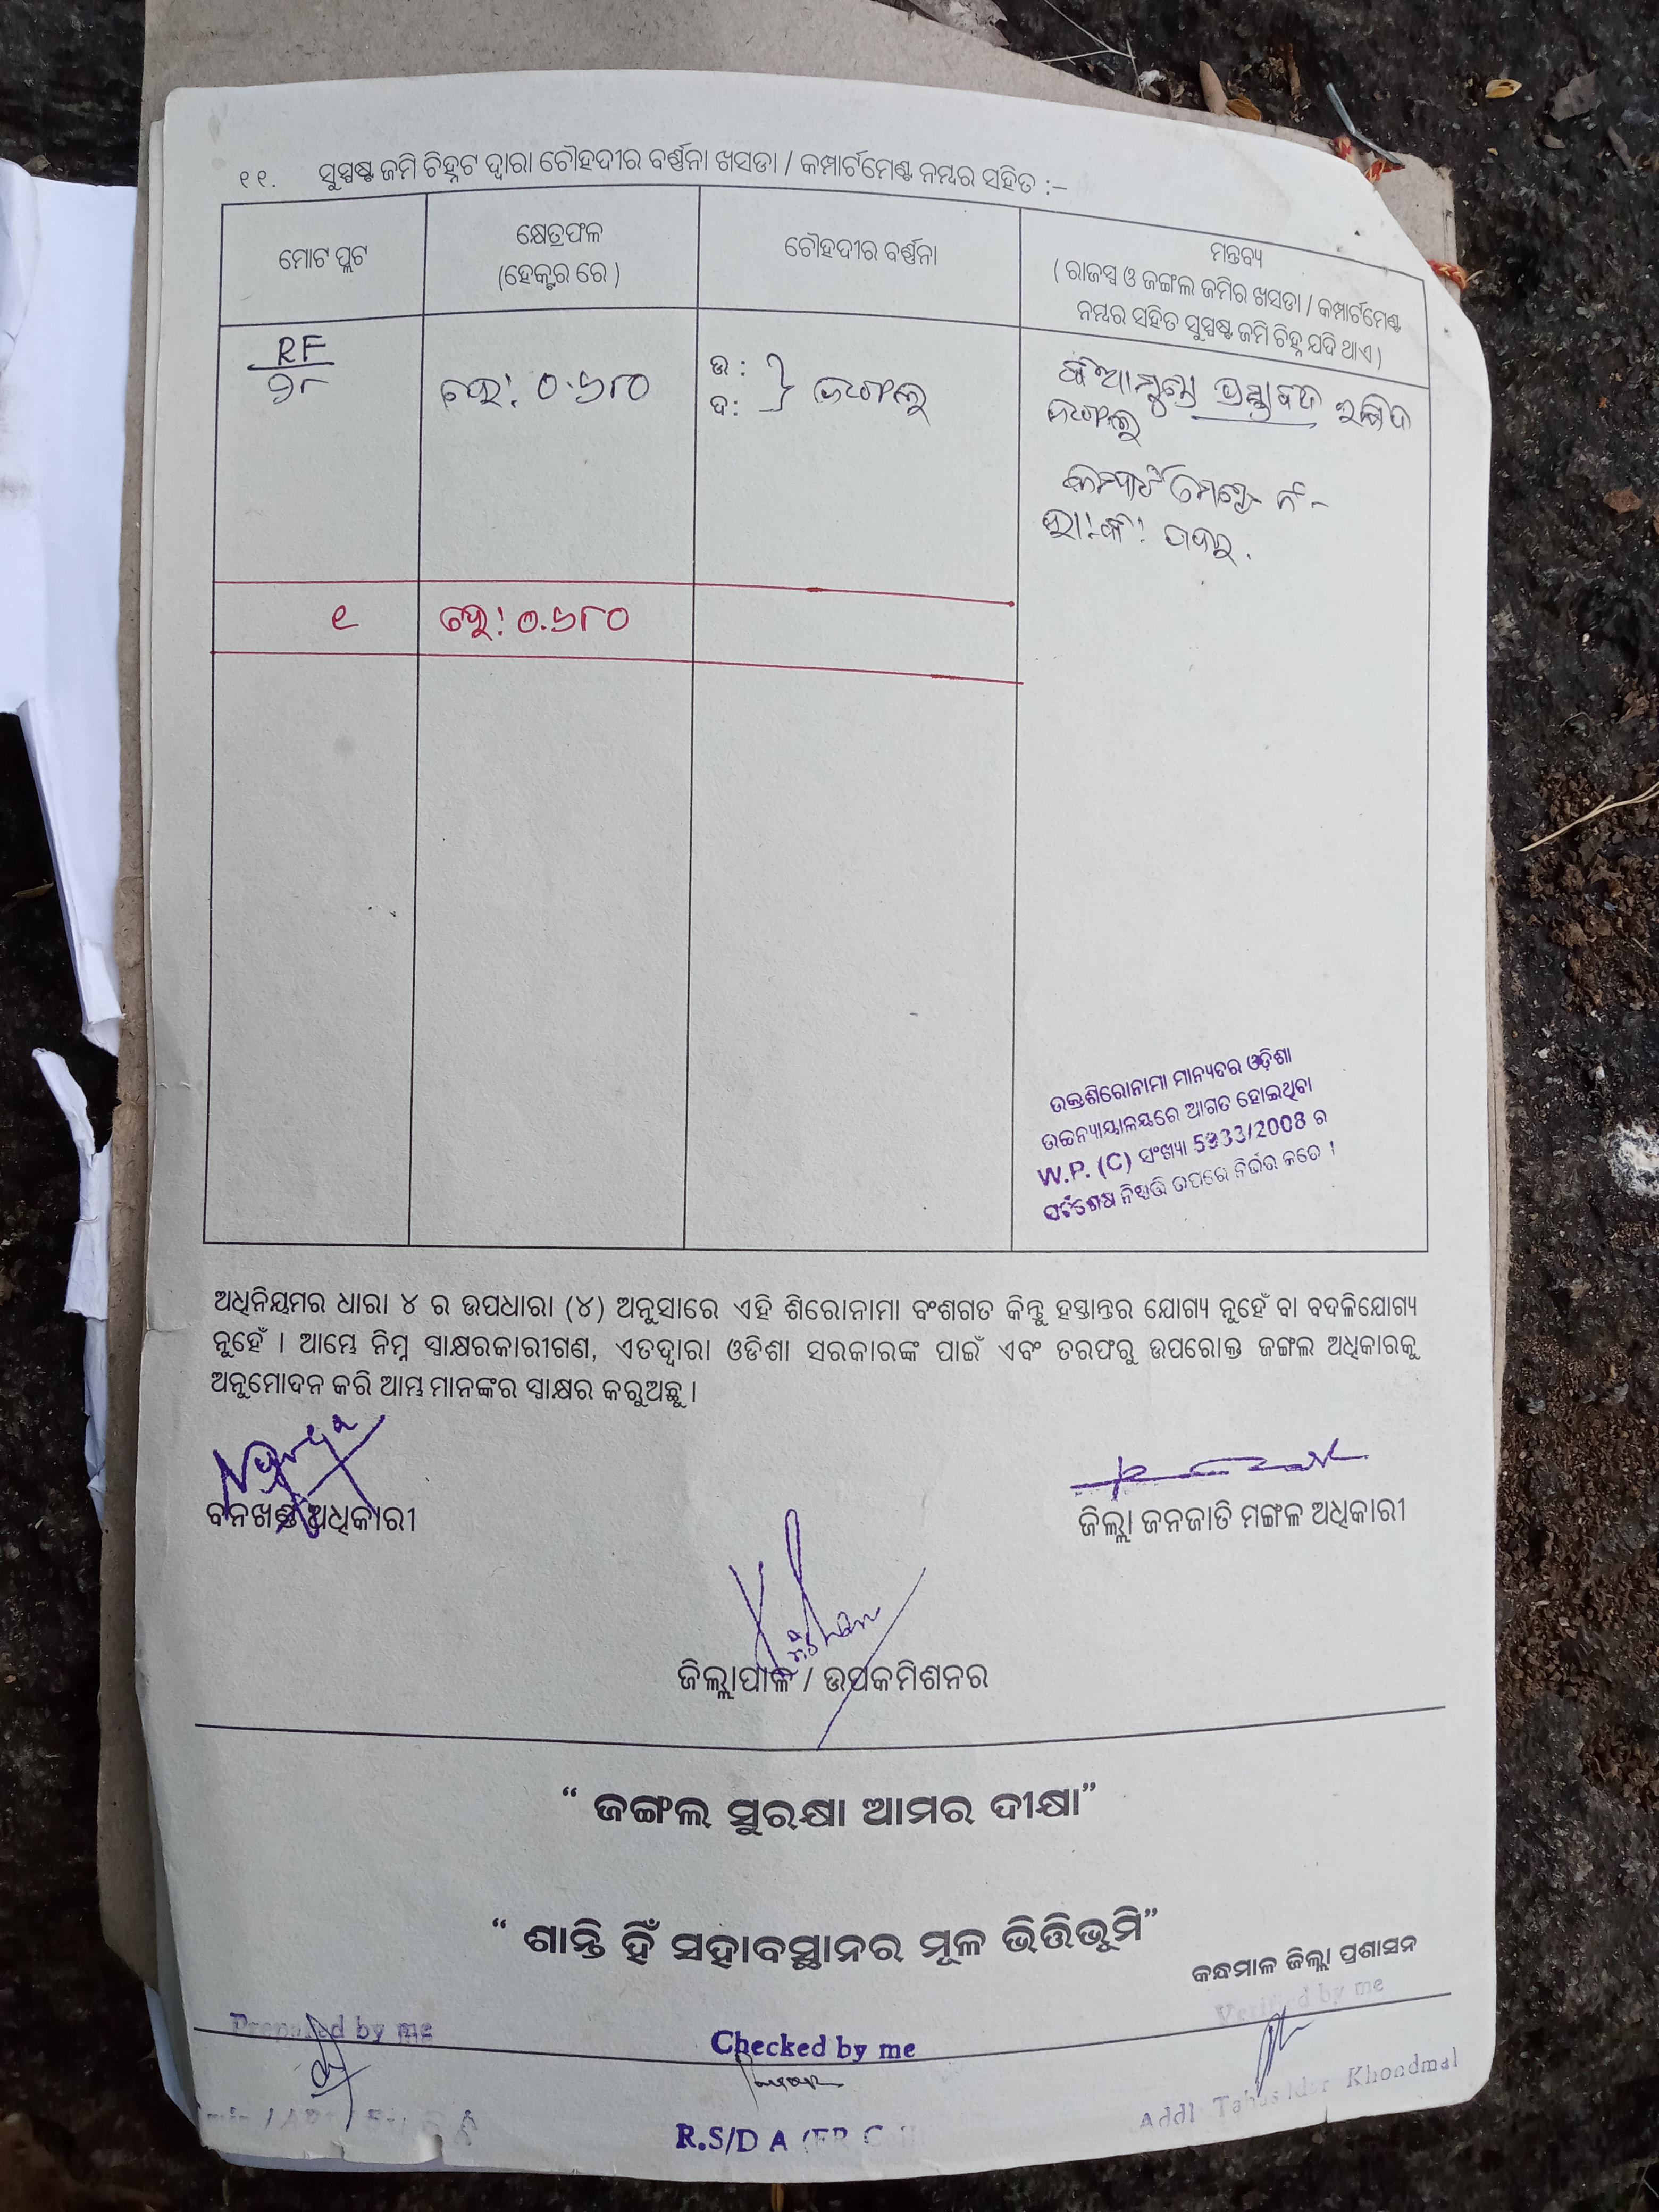 ୧୧. ସୁସ୍ପଷ୍ଟ ଜମି ଚିହ୍ନଟ ଦ୍ୱାରା ଚୌହଦୀର ବର୍ଣ୍ଣନା ଖସଡା / କମ୍ପାର୍ଟମେଣ୍ଟ ନମ୍ବର ସହିତ :–
ମୋଟ ପ୍ଲଟ
କ୍ଷେତ୍ରଫଳ
(ହେକ୍ଟର ରେ)
ଚୌହଦୀର ବର୍ଣ୍ଣନା
ମନ୍ତବ୍ୟ
( ରାଜସ୍ୱ ଓ ଜଙ୍ଗଲ ଜମିର ଖସଡା / କମ୍ପାର୍ଟମେଣ୍ଟ
ନମ୍ବର ସହିତ ସୁସ୍ପଷ୍ଟ ଜମି ଚିହ୍ନ ଯଦି ଥାଏ )
RF
୨୮
ହେ: ୦.୬୮୦
ଉ :
ଦ:
ଜଙ୍ଗଲ
ଜଙ୍ଗଲ
କମ୍ପାର୍ଟମେଣ୍ଟ ନଂ -
୧
ହେ: ୦.୬୮୦
ଉକ୍ତଶିରୋନାମା ମାନ୍ୟବର ଓଡ଼ିଶା
ଉଚ୍ଚନ୍ୟାୟାଳୟରେ ଆଗତ ହୋଇଥିବା
W.P. (C) ସଂଖ୍ୟା 5933/2008 ର
ସର୍ବଶେଷ ନିଷ୍ପତ୍ତି ଉପରେ ନିର୍ଭର କରେ ।
ଅଧିନିୟମର ଧାରା ୪ ର ଉପଧାରା (୪) ଅନୁସାରେ ଏହି ଶିରୋନାମା ବଂଶଗତ କିନ୍ତୁ ହସ୍ତାନ୍ତର ଯୋଗ୍ୟ ନୁହେଁ ବା ବଦଳିଯୋଗ୍ୟ
ନୁହେଁ । ଆମ୍ଭେ ନିମ୍ନ ସ୍ୱାକ୍ଷରକାରୀଗଣ, ଏତଦ୍ୱାରା ଓଡିଶା ସରକାରଙ୍କ ପାଇଁ ଏବଂ ତରଫରୁ ଉପରୋକ୍ତ ଜଙ୍ଗଲ ଅଧିକାରକୁ
ଅନୁମୋଦନ କରି ଆମ୍ଭ ମାନଙ୍କର ସ୍ୱାକ୍ଷର କରୁଅଛୁ ।
ବନଖଣ୍ଡ ଅଧିକାରୀ
ଜିଲ୍ଲା ଜନଜାତି ମଙ୍ଗଳ ଅଧିକାରୀ
ଜିଲ୍ଲାପାଳ / ଉପକମିଶନର
“ ଜଙ୍ଗଲ ସୁରକ୍ଷା ଆମର ଦୀକ୍ଷା”
“ ଶାନ୍ତି ହିଁ ସହାବସ୍ଥାନର ମୂଳ ଭିତ୍ତିଭୂମି”
କନ୍ଧମାଳ ଜିଲ୍ଲା ପ୍ରଶାସନ
Prepared by me
Checked by me
Verified by me
R.S/D A
Addl Tahasildar Khondmal